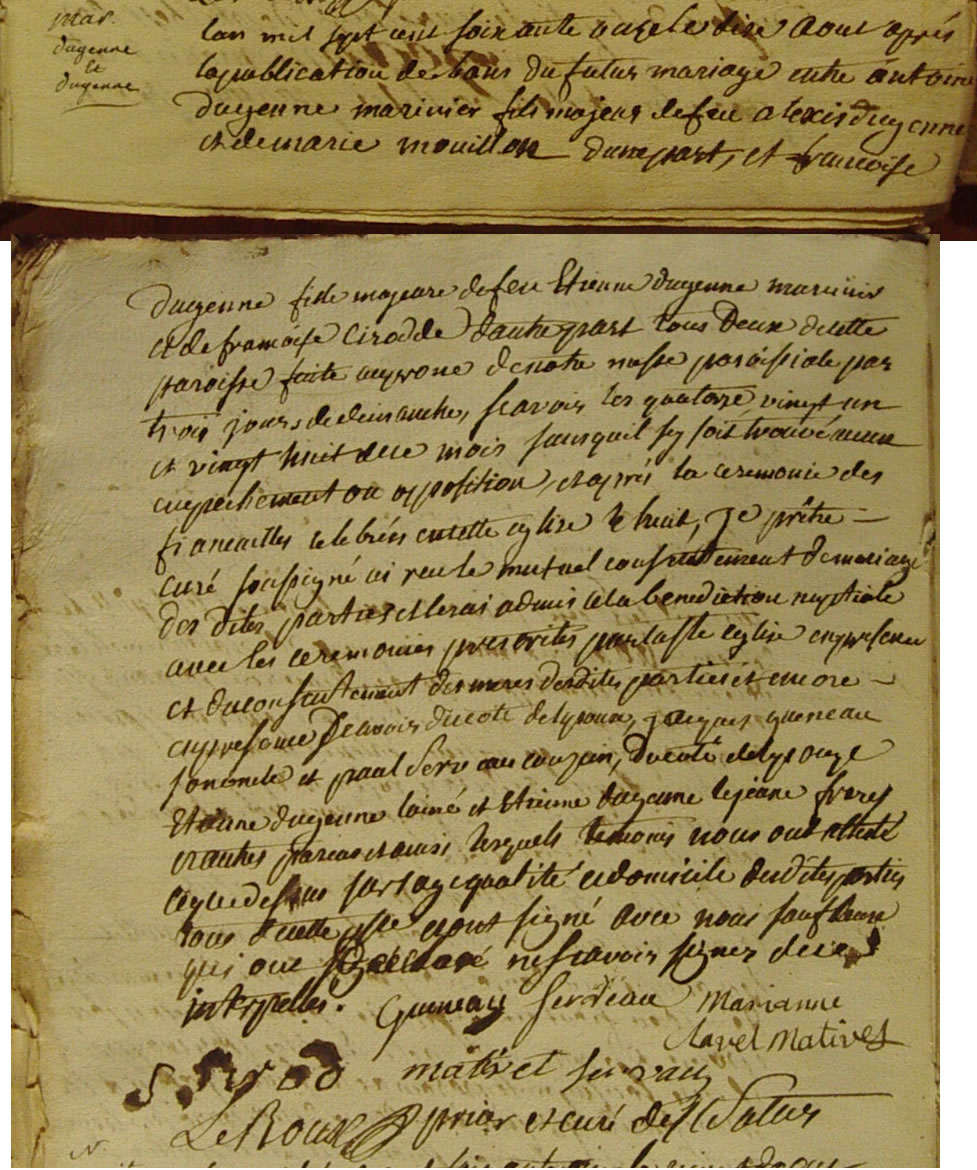 mar.
dugenne
et
dugenne
Lan mil sept cent soixante onze le dix aout après
la publication de bans du futur mariage entre antoine
dugenne marinier fils majeur de feu alexis dugenne
et de marie mouillon dune part, et francoise
dugenne fille majeure de feu Etienne dugenne marinier
et de francoise Cirodde dautre part tous deux de cette
paroisse faite au prone de notre messe paroissiale par
trois jours de dimanche, scavoir les quatorze vingt un
et vingt huit du mois sansquil sy soit trouvé aucun
empechement ou opposition, et après la ceremonie des
fiancailles celebrés en cette eglise le huit, je prêtre
curé soussigné ai recu le mutuel consentement de mariage
des dites parties et les ai admis a la benediction nuptiale
avec les ceremonies prescrites par la ste eglise en presence
et du consentement des meres desdites parties et encore
en presence scavoir du coté de lepoux, jacques queneau
son oncle et paul cousin, du coté de lepouze
Etienne dugenne lainé et Etienne dugenne le jeune freres
et autres parens et amis lesquels temoins nous ont attesté
ce que dessus sur lage qualité et domicile desdites parties
tous de cette et ont signé avec nous sauf
qui ont declaré ne scavoir signer de ce
interpellés. Queneau Serdeau Marianne
Clavel Matives
S. Syrod
Le Roux prior et curé de St Satur
N.